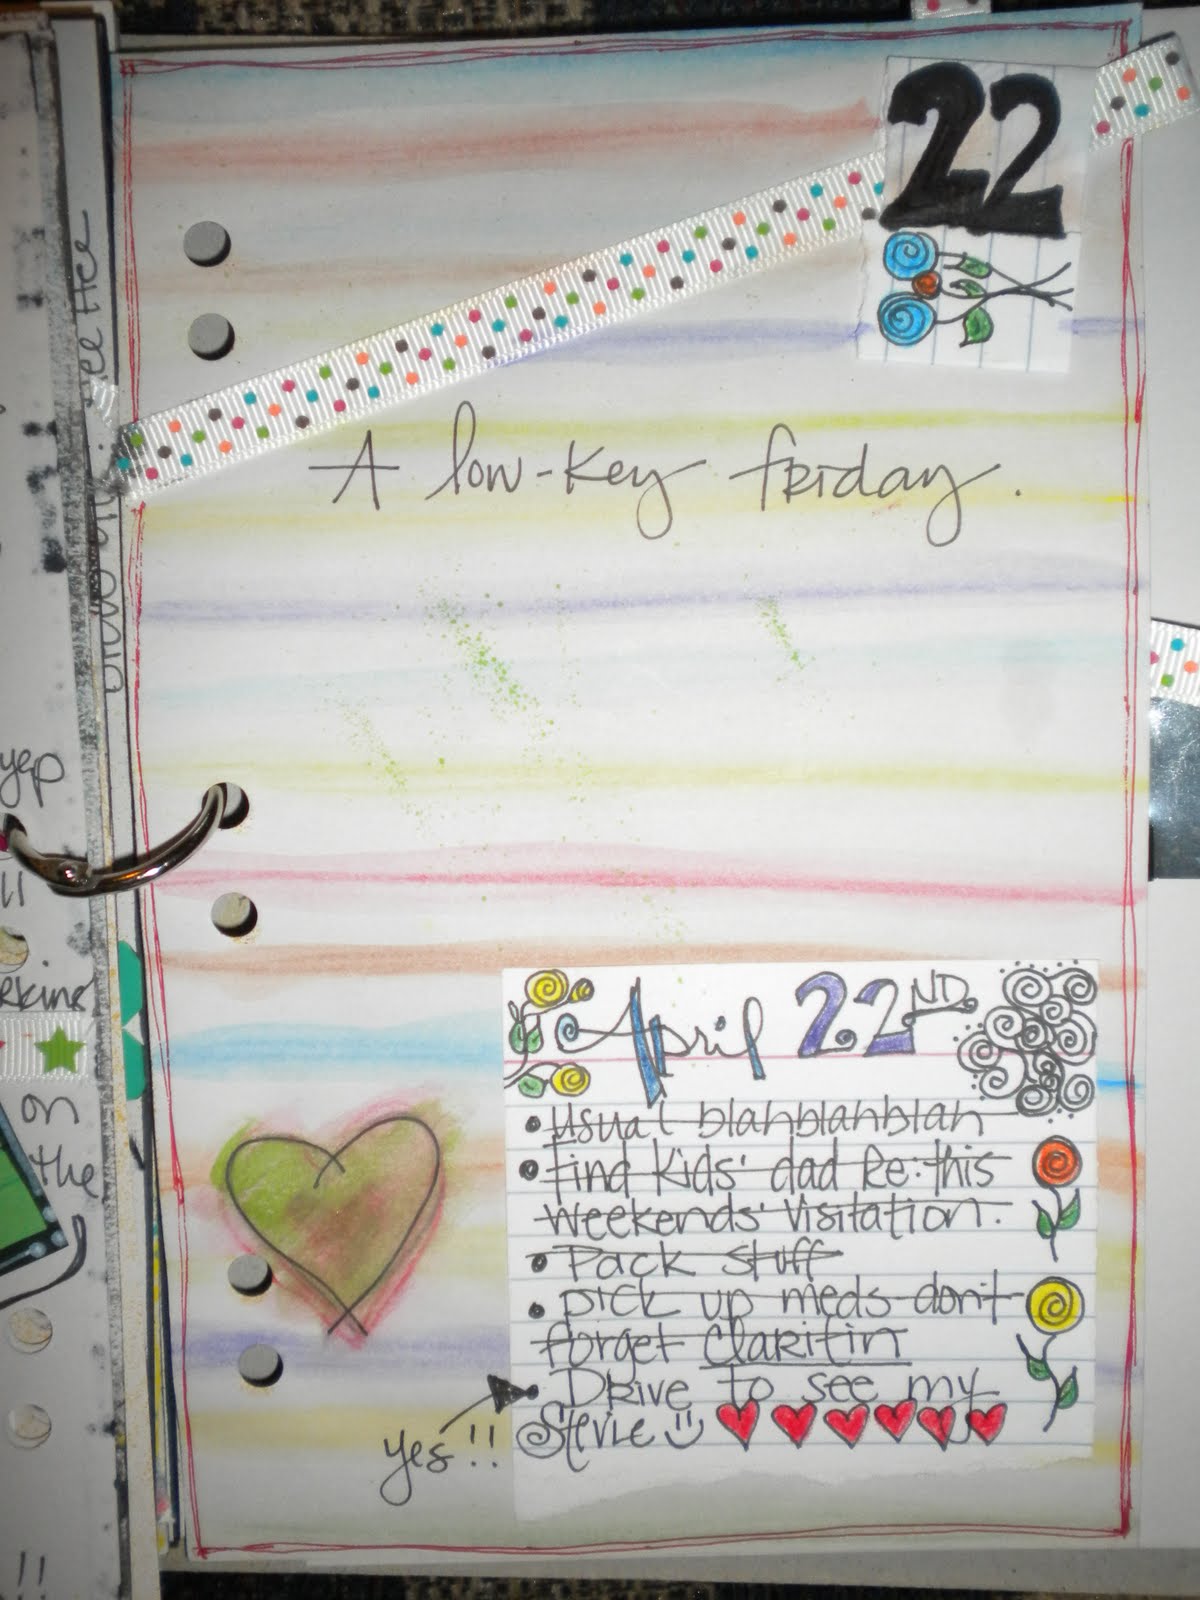 22
A low-key friday.
April 22ND
• Usual blahblahblah
• find kids' dad Re: this
weekends' visitation.
• Pack stuff
• pick up meds don't
forget Claritin
• Drive to see my
Stevie
yes!!
yep
ll
on
the
!!